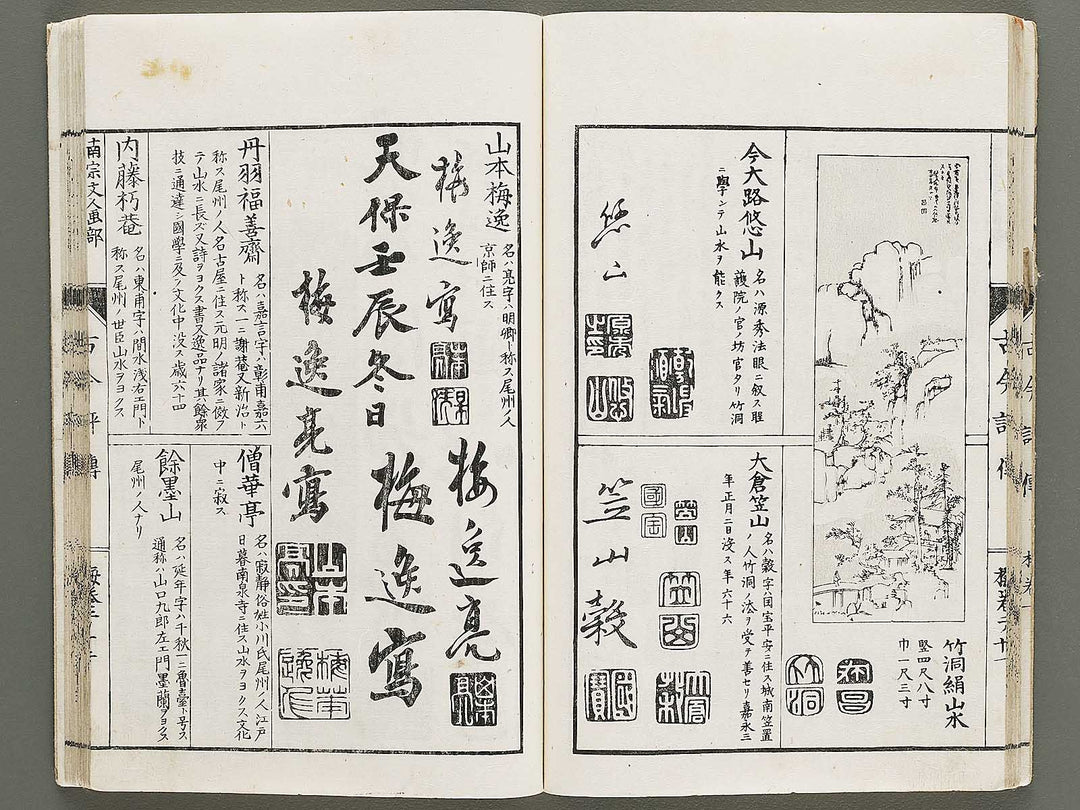 竹洞絹山水
竪四尺八寸
巾一尺三寸
竹洞
今大路悠山
名ハ源秀法眼ニ叙ス聖
護院ノ官ノ坊官タリ竹洞
ニ學ンテ山水ヲ能クス
悠山
大倉笠山
名ハ穀字ハ国宝平安ニ住ス城南笠置
ノ人竹洞ノ添ヲ受テ善セリ嘉永三
年正月二日没ス年六十六
笠山穀
山本梅逸
名ハ亮字ハ明卿ト称ス尾州ノ人
京師ニ住ス
梅逸寫
梅逸亮
天保壬辰冬日 梅逸寫
梅逸亮寫
丹羽福善齋
名ハ嘉言字ハ彰甫嘉六
ト称ス一ニ謝菴又新治ト
称ス尾州ノ人名古屋ニ住ス元明ノ諸家ニ倣フ
テ山水ニ長ズ又詩ヲヨクス書又逸品ナリ其餘衆
技ニ通達シ國學ニ及フ文化中没ス歳六十四
内藤朽菴
名ハ東甫字ハ閒水浅右エ門ト
称ス尾州ノ世臣山水ヲヨクス
僧華亭
名ハ寂静俗姓小川氏尾州ノ人江戸
日暮南泉寺ニ住ス山水ヲヨクス文化
中ニ寂ス
餘墨山
名ハ延年字ハ千秋一ニ魯臺ト号ス
通称ハ山口九郎左エ門墨蘭ヲヨクス
尾州ノ人ナリ
南宗文人画部
古今評傳